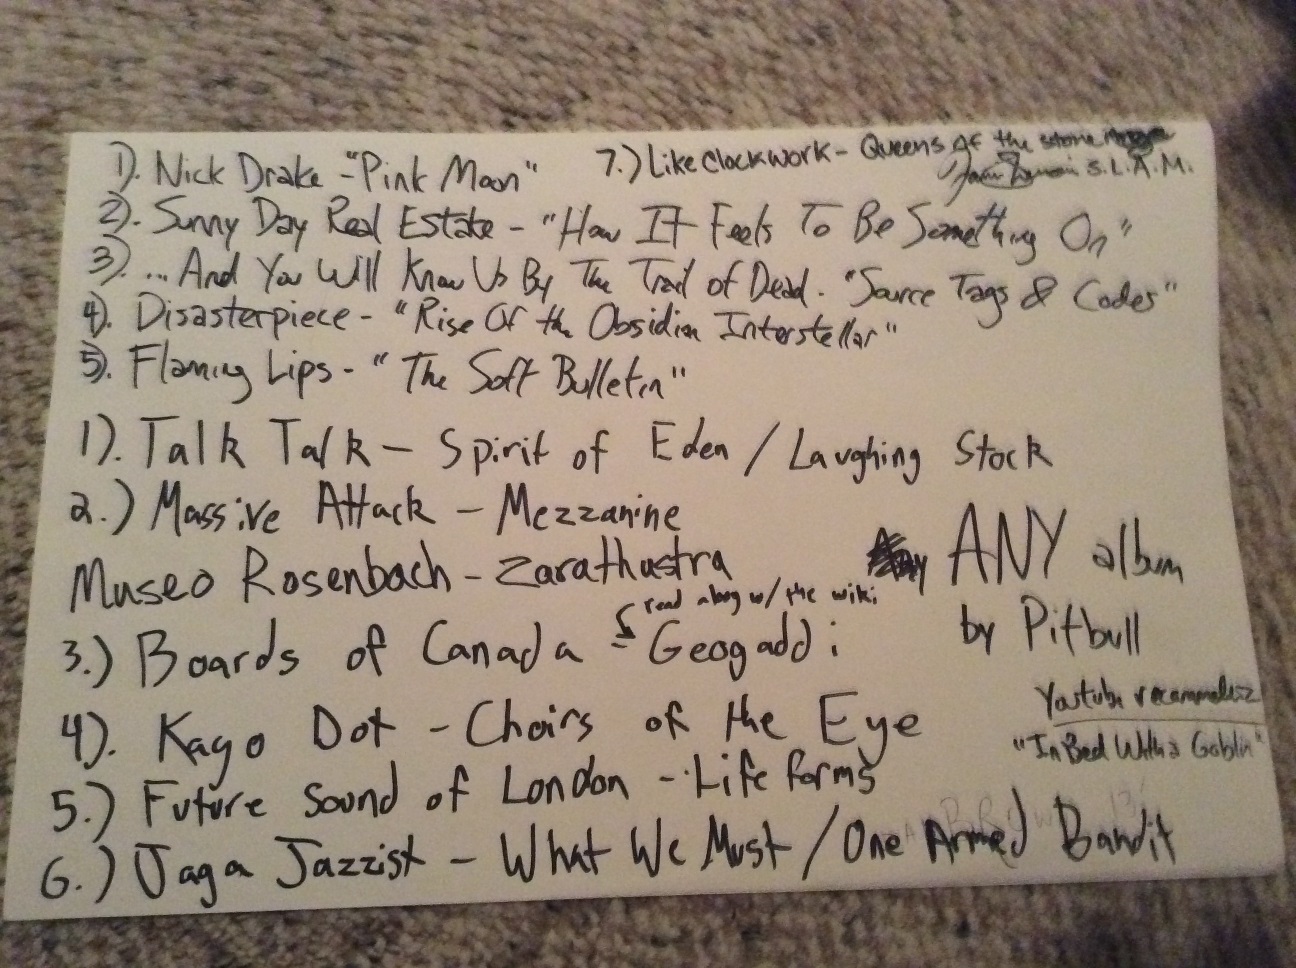 1). Nick Drake - "Pink Moon"
7.) Like Clockwork - Queens of the stone
S.L.A.M.
2). Sunny Day Real Estate - "How It Feels To Be Something On"
3). ...And You Will Know Us By The Trail of Dead. "Source Tags & Codes"
4). Disasterpiece - "Rise Of the Obsidian Interstellar"
5). Flaming Lips - "The Soft Bulletin"
1). Talk Talk - Spirit of Eden / Laughing Stock
2.) Massive Attack - Mezzanine
Museo Rosenbach - Zarathustra
read along w/ the wiki
3.) Boards of Canada - Geogaddi
ANY album
by Pitbull
4). Kayo Dot - Choirs of the Eye
Youtube
"In Bed With a Goblin"
5.) Future Sound of London - Lifeforms
6.) Jaga Jazzist - What We Must / One Armed Bandit